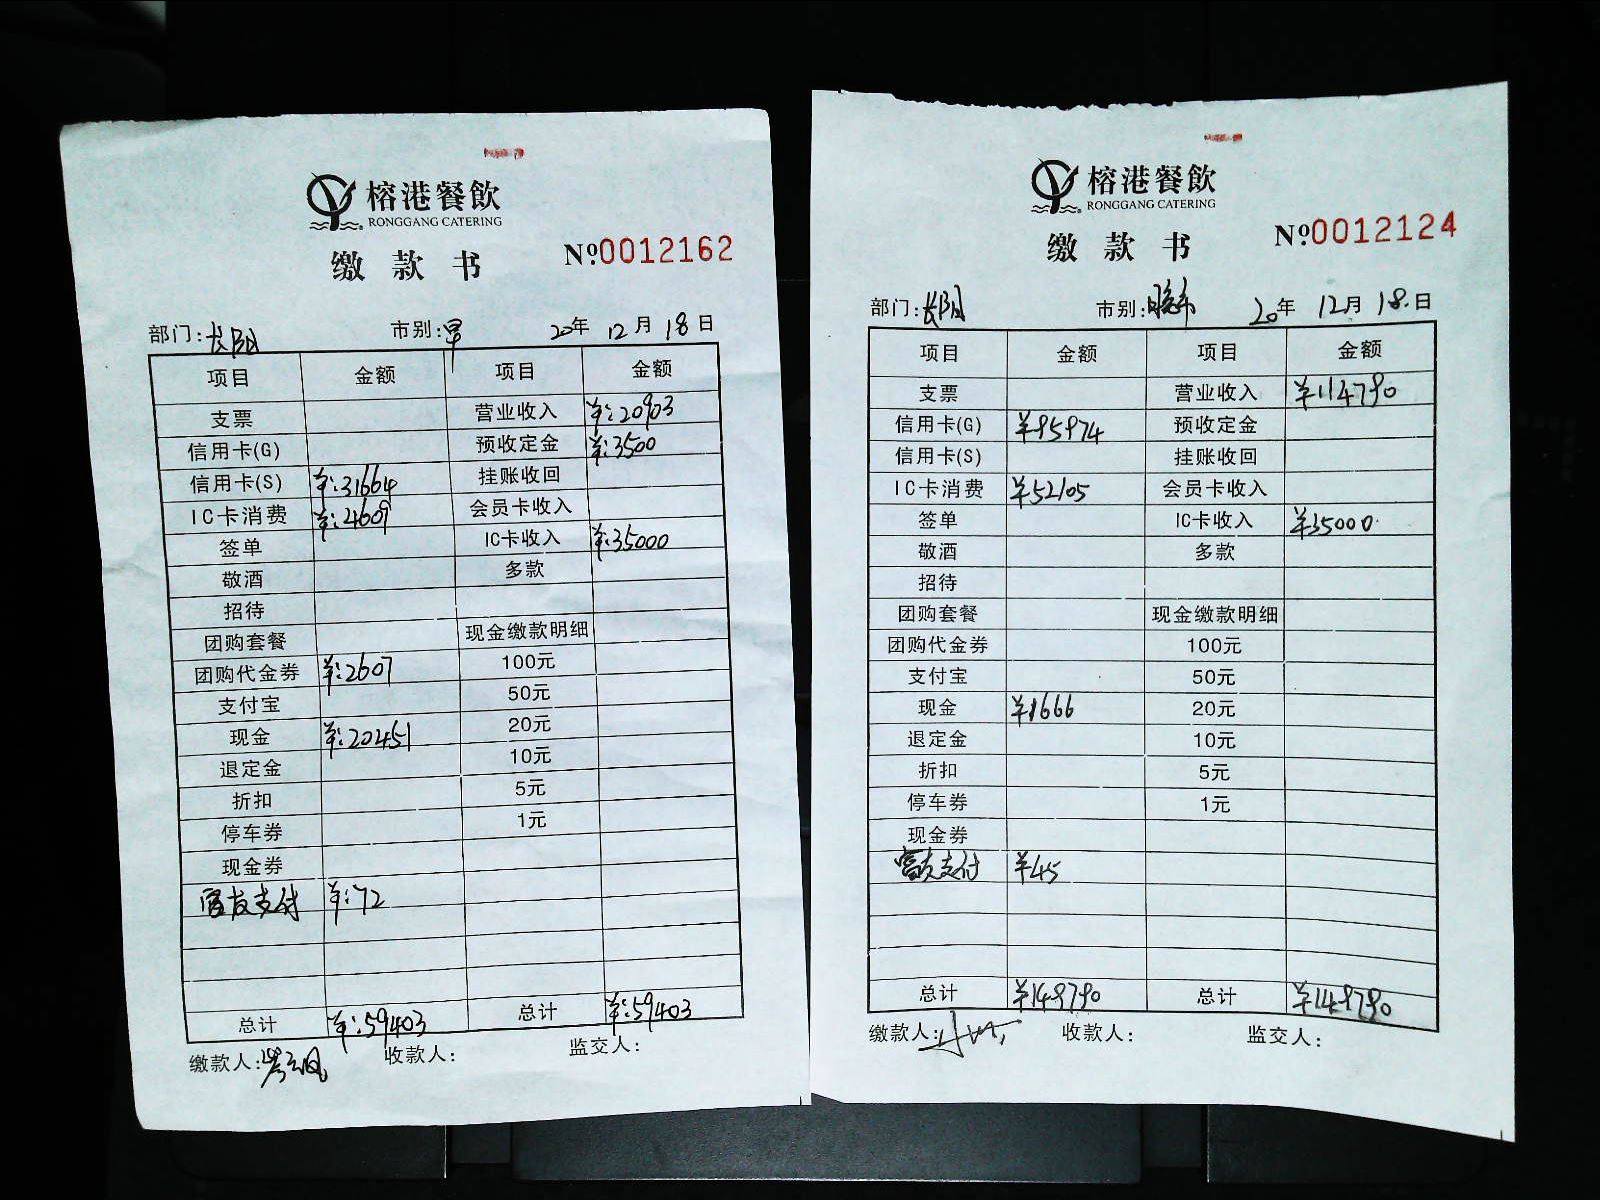 榕港餐飲
RONGGANG CATERING
缴款书 №0012162
部门:长阳 市别:早 20年 12月 18日
项目 金额 项目 金额
支票 营业收入 ¥:20903
信用卡(G) 预收定金 ¥:3500
信用卡(S) ¥:31664 挂账收回
IC卡消费 ¥:4609 会员卡收入
签单 IC卡收入 ¥:35000
敬酒 多款
招待
团购套餐 现金缴款明细
团购代金券 ¥:2607 100元
支付宝 50元
现金 ¥:20451 20元
退定金 10元
折扣 5元
停车券 1元
现金券
富友支付 ¥:72
总计 ¥:59403 总计 ¥:59403
缴款人: 收款人: 监交人:
榕港餐飲
RONGGANG CATERING
缴款书 №0012124
部门:长阳 市别:晚市 20年 12月 18日
项目 金额 项目 金额
支票 营业收入 ¥114790
信用卡(G) ¥95974 预收定金
信用卡(S) 挂账收回
IC卡消费 ¥52105 会员卡收入
签单 IC卡收入 ¥35000
敬酒 多款
招待
团购套餐 现金缴款明细
团购代金券 100元
支付宝 50元
现金 ¥1666 20元
退定金 10元
折扣 5元
停车券 1元
现金券
富友支付 ¥45
总计 ¥149790 总计 ¥149790
缴款人: 收款人: 监交人: